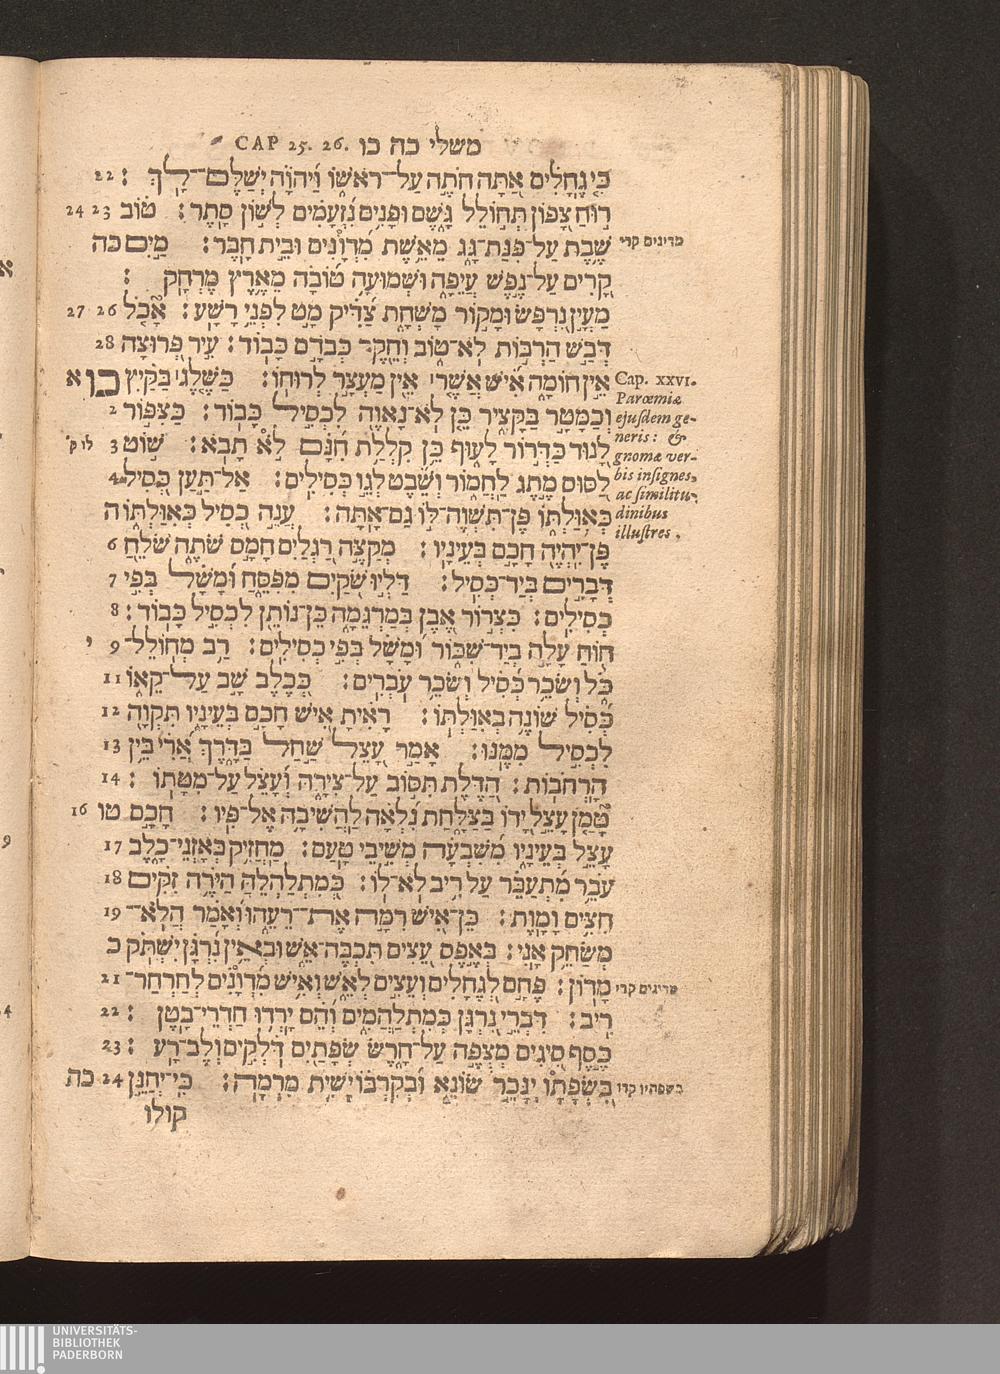 משלי כה כו CAP 25. 26.
כִּי גֶחָלִים אַתָּה חֹתֶה עַל־רֹאשׁוֹ וַיהוָה יְשַׁלֶּם־לָךְ׃ 22
רוּחַ צָפוֹן תְּחוֹלֵל גָּשֶׁם וּפָנִים נִזְעָמִים לְשׁוֹן סָתֶר׃ טוֹב 23 24
שֶׁבֶת עַל־פִּנַּת־גָּג מֵאֵשֶׁת מִדְוָנִים וּבֵית חָבֶר׃ מַיִם כה
מדינים קרי
קָרִים עַל־נֶפֶשׁ עֲיֵפָה וּשְׁמוּעָה טוֹבָה מֵאֶרֶץ מֶרְחָק׃
מַעְיָן נִרְפָּשׂ וּמָקוֹר מָשְׁחָת צַדִּיק מָט לִפְנֵי רָשָׁע׃ אָכֹל 26 27
דְּבַשׁ הַרְבּוֹת לֹא־טוֹב וְחֵקֶר כְּבֹדָם כָּבוֹד׃ עִיר פְּרוּצָה 28
אֵין חוֹמָה אִישׁ אֲשֶׁר אֵין מַעְצָר לְרוּחוֹ׃ כַּשֶּׁלֶג בַּקַּיִץ כו א
Cap. XXVI.
Parœmiæ
ejusdem ge-
neris: &
gnomæ ver-
bis insignes,
ac similitu-
dinibus
illustres.
וְכַמָּטָר בַּקָּצִיר כֵּן לֹא־נָאוֶה לִכְסִיל כָּבוֹד׃ כַּצִּפּוֹר 2
לָנוּד כַּדְּרוֹר לָעוּף כֵּן קִלְלַת חִנָּם לֹא תָבֹא׃ שׁוֹט 3 לו ק׳
לַסּוּס מֶתֶג לַחֲמוֹר וְשֵׁבֶט לְגֵו כְּסִילִים׃ אַל־תַּעַן כְּסִיל 4
כְּאִוַּלְתּוֹ פֶּן־תִּשְׁוֶה־לּוֹ גַם־אָתָּה׃ עֲנֵה כְסִיל כְּאִוַּלְתּוֹ ה
פֶּן־יִהְיֶה חָכָם בְּעֵינָיו׃ מְקַצֶּה רַגְלַיִם חָמָס שֹׁתֶה שֹׁלֵחַ 6
דְּבָרִים בְּיַד־כְּסִיל׃ דַּלְיוּ שֹׁקַיִם מִפִּסֵּחַ וּמָשָׁל בְּפִי 7
כְסִילִים׃ כִּצְרוֹר אֶבֶן בְּמַרְגֵּמָה כֵּן־נוֹתֵן לִכְסִיל כָּבוֹד׃ 8
חוֹחַ עָלָה בְיַד־שִׁכּוֹר וּמָשָׁל בְּפִי כְסִילִים׃ רַב מְחוֹלֵל־ 9 י
כֹּל וְשֹׂכֵר כְּסִיל וְשֹׂכֵר עֹבְרִים׃ כְּכֶלֶב שָׁב עַל־קֵאוֹ 11
כְּסִיל שׁוֹנֶה בְאִוַּלְתּוֹ׃ רָאִיתָ אִישׁ חָכָם בְּעֵינָיו תִּקְוָה 12
לִכְסִיל מִמֶּנּוּ׃ אָמַר עָצֵל שַׁחַל בַּדָּרֶךְ אֲרִי בֵּין 13
הָרְחֹבוֹת׃ הַדֶּלֶת תִּסּוֹב עַל־צִירָהּ וְעָצֵל עַל־מִטָּתוֹ׃ 14
טָמַן עָצֵל יָדוֹ בַּצַּלָּחַת נִלְאָה לַהֲשִׁיבָהּ אֶל־פִּיו׃ חָכָם טו 16
עָצֵל בְּעֵינָיו מִשִּׁבְעָה מְשִׁיבֵי טָעַם׃ מַחֲזִיק בְּאָזְנֵי־כָלֶב 17
עֹבֵר מִתְעַבֵּר עַל־רִיב לֹא־לוֹ׃ כְּמִתְלַהְלֵהַּ הַיֹּרֶה זִקִּים 18
חִצִּים וָמָוֶת׃ כֵּן־אִישׁ רִמָּה אֶת־רֵעֵהוּ וְאָמַר הֲלֹא־ 19
מְשַׂחֵק אָנִי׃ בְּאֶפֶס עֵצִים תִּכְבֶּה־אֵשׁ וּבְאֵין נִרְגָּן יִשְׁתֹּק כ
מָדוֹן׃ פֶּחָם לְגֶחָלִים וְעֵצִים לְאֵשׁ וְאִישׁ מִדְוָנִים לְחַרְחַר־ 21
מדינים קרי
רִיב׃ דִּבְרֵי נִרְגָּן כְּמִתְלַהֲמִים וְהֵם יָרְדוּ חַדְרֵי־בָטֶן׃ 22
כֶּסֶף סִיגִים מְצֻפֶּה עַל־חָרֶשׂ שְׂפָתַיִם דֹּלְקִים וְלֶב־רָע׃ 23
בִּשְׂפָתָו יִנָּכֵר שׂוֹנֵא וּבְקִרְבּוֹ יָשִׁית מִרְמָה׃ כִּי־יְחַנֵּן 24 כה
בשפתיו קרי
קולו
UNIVERSITÄTS-
BIBLIOTHEK
PADERBORN